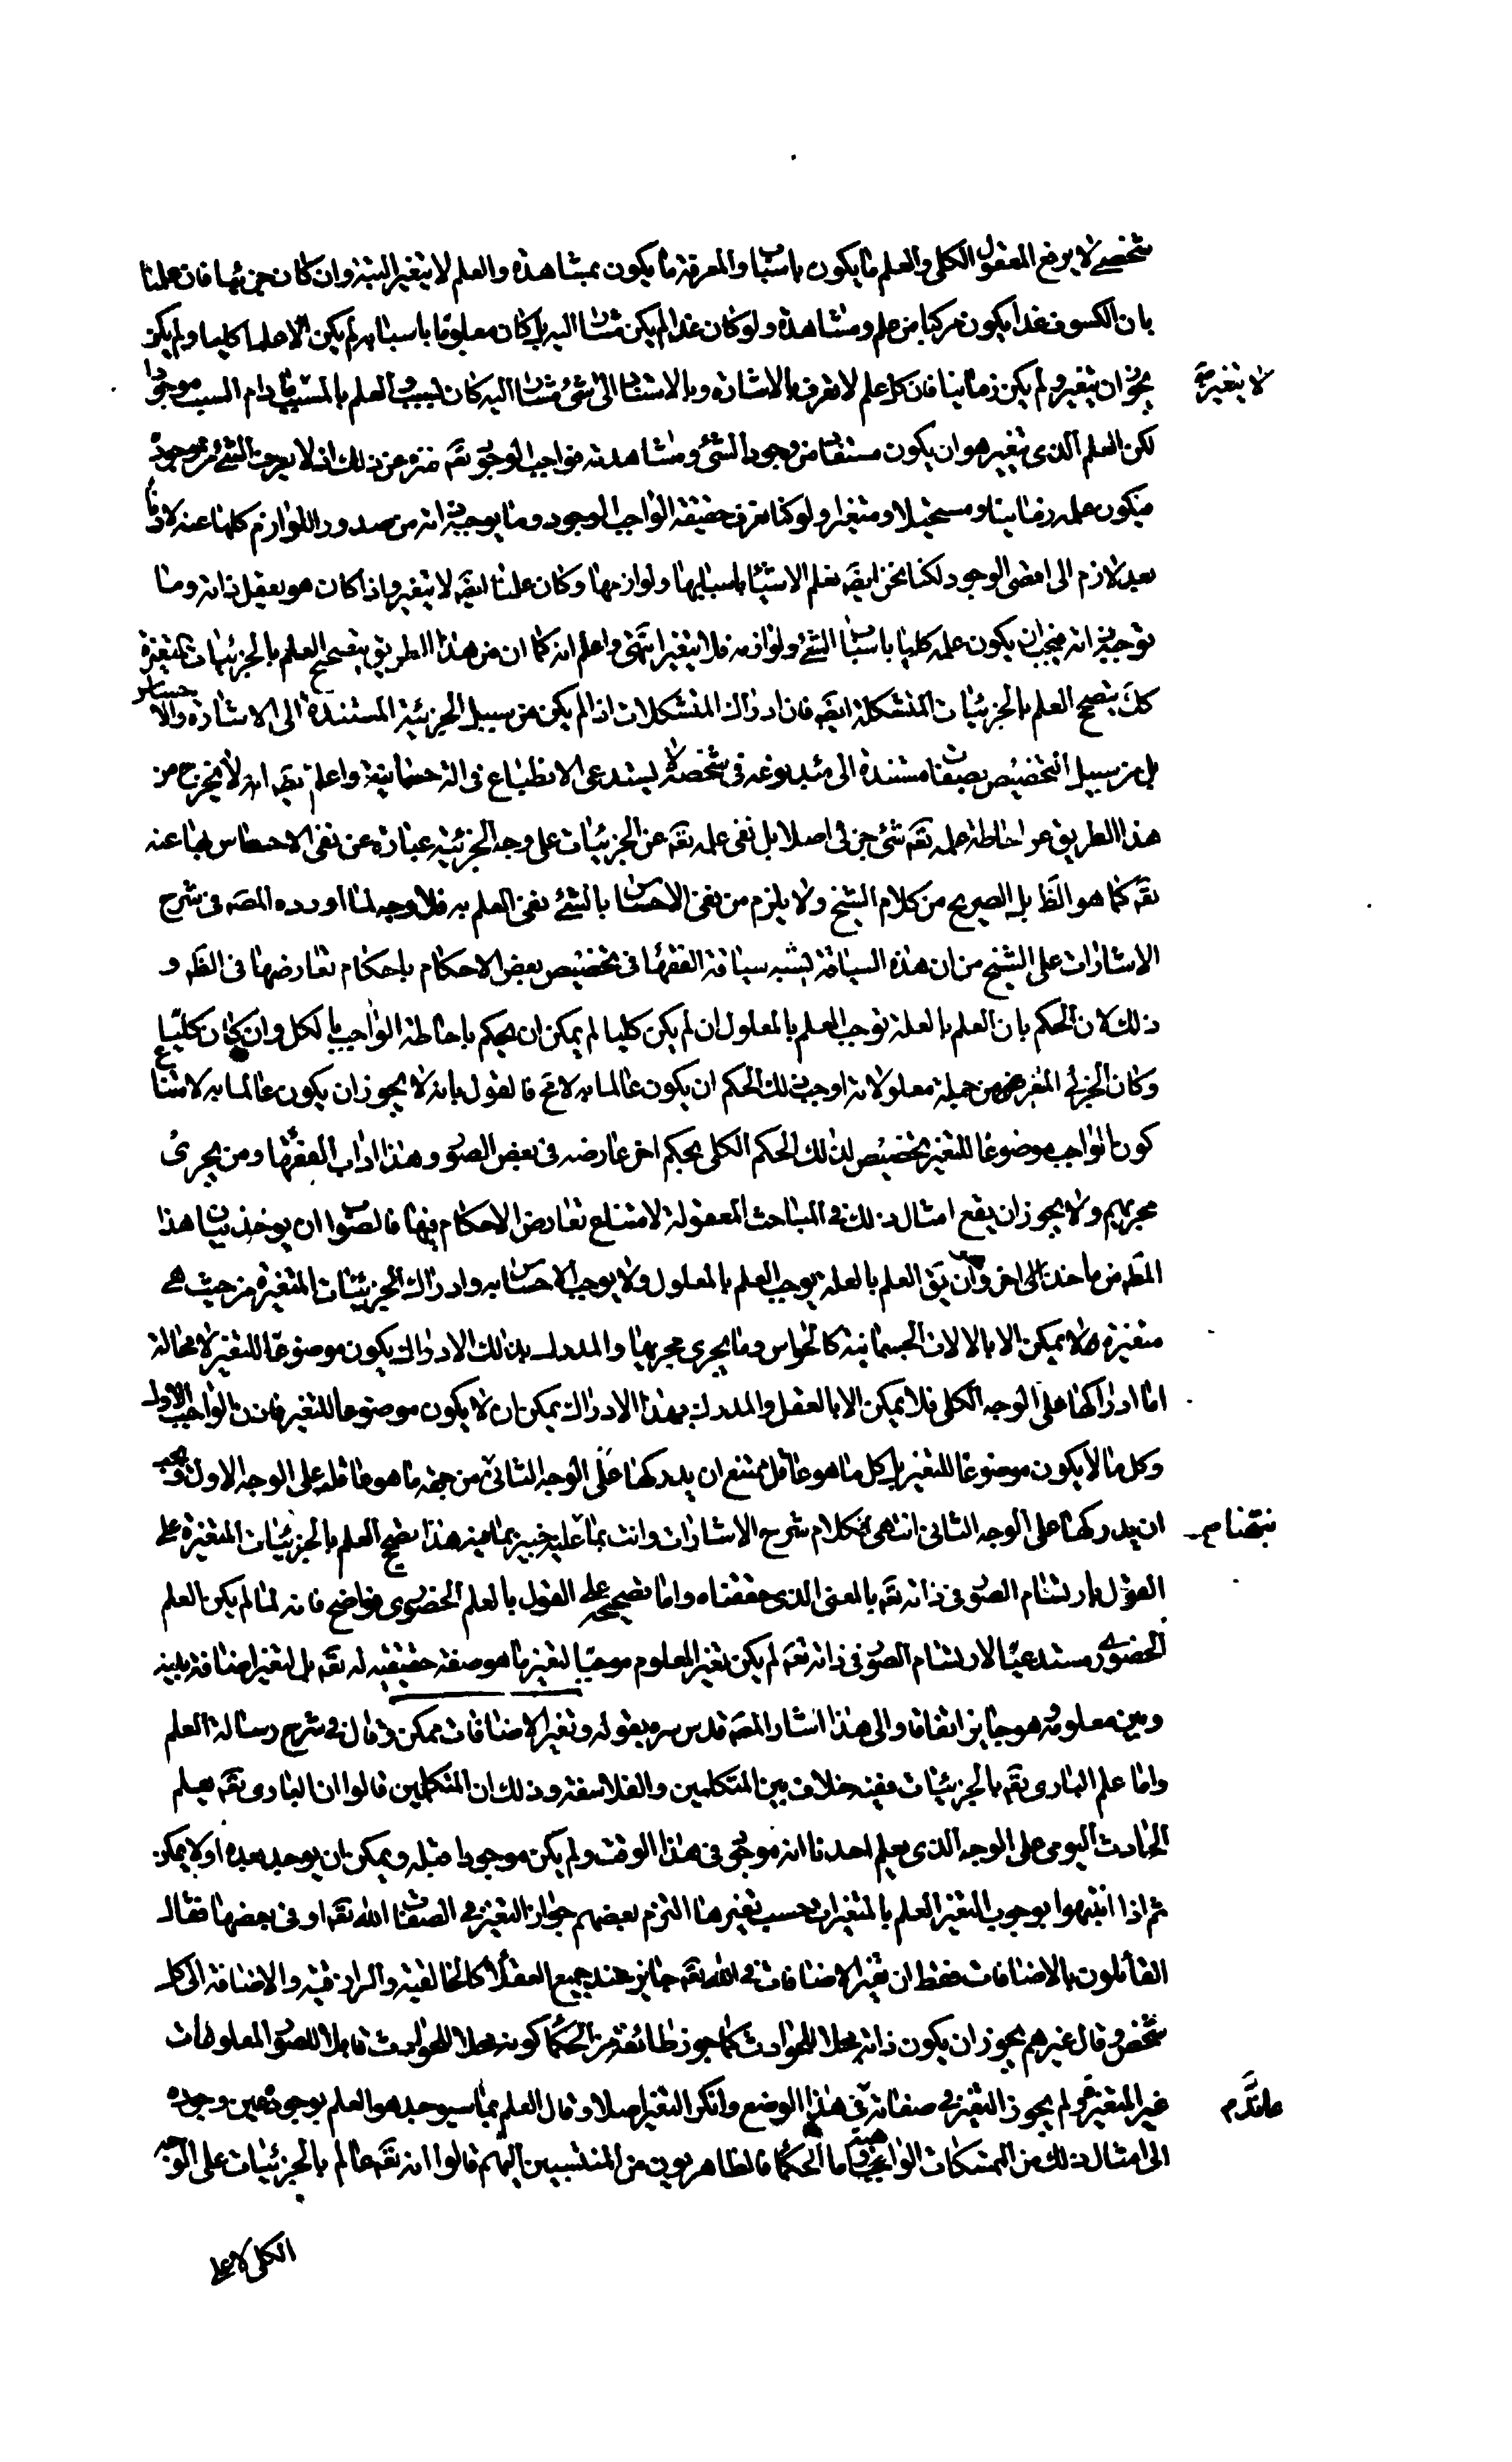 شخصى لا يرفع المعقول الكلى والعلم ما يكون باسباب والمعرفة ما يكون بمشاهدة والعلم لا يتغير البتة وان كان جزئيا فان علمنا
بان الكسوف غدا يكون مركبا من علم ومشاهدة ولو كان غدا لم يكن مشارا اليه بل كان معلوما باسبابه لم يكن الا علما كليا ولم يكن
يجوز ان يتغير ولم يكن زمانيا فان كل علم لا يعرف بالاشارة وبالاستناد الى شئ مشار اليه كان بسبب والعلم بالمسبب ما دام السبب موجودا
لا يتغير صح
لكن العلم الذى يتغير هو ان يكون مستفادا من وجود الشئ ومشاهدته فواجب الوجود تعَ منزه عن ذلك لانه لا يعرف الشئ من وجوده
فيكون علمه زمانيا ومستحيلا ومتغيرا ولو كنا نعرف حقيقة الواجب الوجود وما يوجبه ذاته من صدور اللوازم كلها عنه لازما
بعد لازم الى اقصى الوجود لكنا نحن ايضَ نعلم الاشياء باسبابها ولوازمها وكان علمنا ايضَ لا يتغير واذا كان هو يعقل ذاته وما
توجبه ذاته فيجب ان يكون علمه كليا باسباب الشئ ولوازمه فلا يتغير انتهى واعلم انه كما ان من هذا الطريق يتصحح العلم بالجزئيات المتغيرة
كَلَ يتصحح العلم بالجزئيات المتشكلة ايضَ فان ادراك المتشكلات اذا لم يكن من سبيل الجزئية المستندة الى الاشارة والاحساس
بل من سبيل التخصيص بصفات مستندة الى مبدء نوعه فى شخصه لا يستدعى الانطباع فى الة جسمانية واعلم ايضَ انه لا يخرج من
هذا الطريق عن احاطة علمه تعَ شئ جزئى اصلا بل نفى علمه تعَ عن الجزئيات على وجه الجزئية عبارة عن نفى الاحساس بها عنه
تعَ كما هو الظَ بل الصريح من كلام الشيخ ولا يلزم من نفى الاحساس بالشئ نفى العلم به فلا وجه لما اورده المصَ فى شرح
الاشارات على الشيخ من ان هذه السياقة يشبه سياقة الفقهاء فى تخصيص بعض الاحكام باحكام تعارضها فى الظَ و
ذلك لان الحكم بان العلم بالعلة توجب العلم بالمعلول ان لم يكن كليا لم يمكن ان يحكم باحاطة الواجب بالكل وان كان كليّا
وكان الجزئى المتغير من جملة معلولاته اوجب ذلك الحكم ان يكون عالما به لامح فالقول بانه لا يجوز ان يكون عالما به لامتناع
كون الواجب موضوعا للتغير تخصيص لذلك الحكم الكلى بحكم اخر عارضه فى بعض الصور وهذا داب الفقهاء ومن يجرى
مجريهم ولا يجوز ان يقع امثال ذلك فى المباحث المعقولة لامتناع تعارض الاحكام فيها فالصواب ان يوخذ بيان هذا
المطَ من ماخذ اخر وهو ان يقَ العلم بالعلة يوجب العلم بالمعلول ولا يوجب الاحساس به وادراك الجزئيات المتغيرة من حيث هى
متغيرة لا يمكن الا بالالات الجسمانية كالحواس وما يجرى مجريها والمدرك بذلك الادراك يكون موضوعا للتغير لا محالة
اما ادراكها على الوجه الكلى فلا يمكن الا بالعقل والمدرك بهذا الادراك يمكن ان لا يكون موضوعا للتغير فاذن الواجب الاول
وكل ما لا يكون موضوعا للتغير بل كل ما هو عاقل يمتنع ان يدركها على الوجه الثانى من جهة ما هو عاقل على الوجه الاول ويجب
ان يدركها على الوجه الثانى انتهى كلام شرح الاشارات وانت بما عليه خبير بما فيه هذا تصحيح العلم بالجزئيات المتغيرة على
نبهنا صح
القول بارتسام الصور فى ذاته تعَ بالمعنى الذى حققناه واما تصحيحه على القول بالعلم الحضورى فواضح فانه لما لم يكن العلم
الحضورى مستدعيا لارتسام الصور فى ذاته تعَ لم يكن تغير المعلوم موجبا لتغير ما هو صفة حقيقية له تعَ بل لتغير اضافة بينه
وبين معلوله هو جايز اتفاقا والى هذا اشار المصَ قدس سره بقوله وتغير الاضافات ممكن وقال فى شرح رسالة العلم
واما علم البارى تعَ بالجزئيات ففيه خلاف بين المتكلمين والفلاسفة وذلك ان المتكلمين قالوا ان البارى تعَ يعلم
الحادث اليومى على الوجه الذى يعلم احدنا انه موجود فى هذا الوقت ولم يكن موجودا قبله ويمكن ان يوجد بعده او لا يمكن
ثم اذا انتبهوا بوجوب التغير العلم بالمتغيرات بحسب تغيرها التزم بعضهم جواز التغير فى الصفات الله تعَ او فى بعضها فقال
القائلون بالاضافات فقط ان تغير الاضافات فى الله تعَ جايز عند جميع العقلاء كالخالقية والرازقية والاضافة الى كل
شخص وقال غيرهم يجوز ان يكون ذاته محلا للحوادث كما جوز طائفة من الحكما كونه محلا للحوادث قابلا للصور المعلومات
غير المتغيرة ولم يجوز التغير فى صفاته فى هذا الوضع وانكر التغير اصلا وقال العلم بما سيوجد هو العلم بوجوده حين وجوده
الى امثال ذلك من التمسكات الواهية واما الحكما فالظاهريون من المنتسبين اليهم قالوا انه تعَ عالم بالجزئيات على الوجه
الكلى لا على